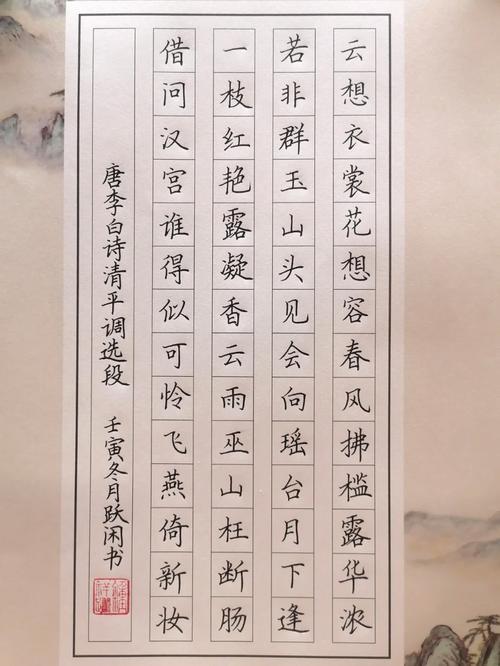 云想衣裳花想容春风拂槛露华浓
若非群玉山头见会向瑶台月下逢
一枝红艳露凝香云雨巫山枉断肠
借问汉宫谁得似可怜飞燕倚新妆
唐李白诗清平调选段 壬寅冬月跃闲书